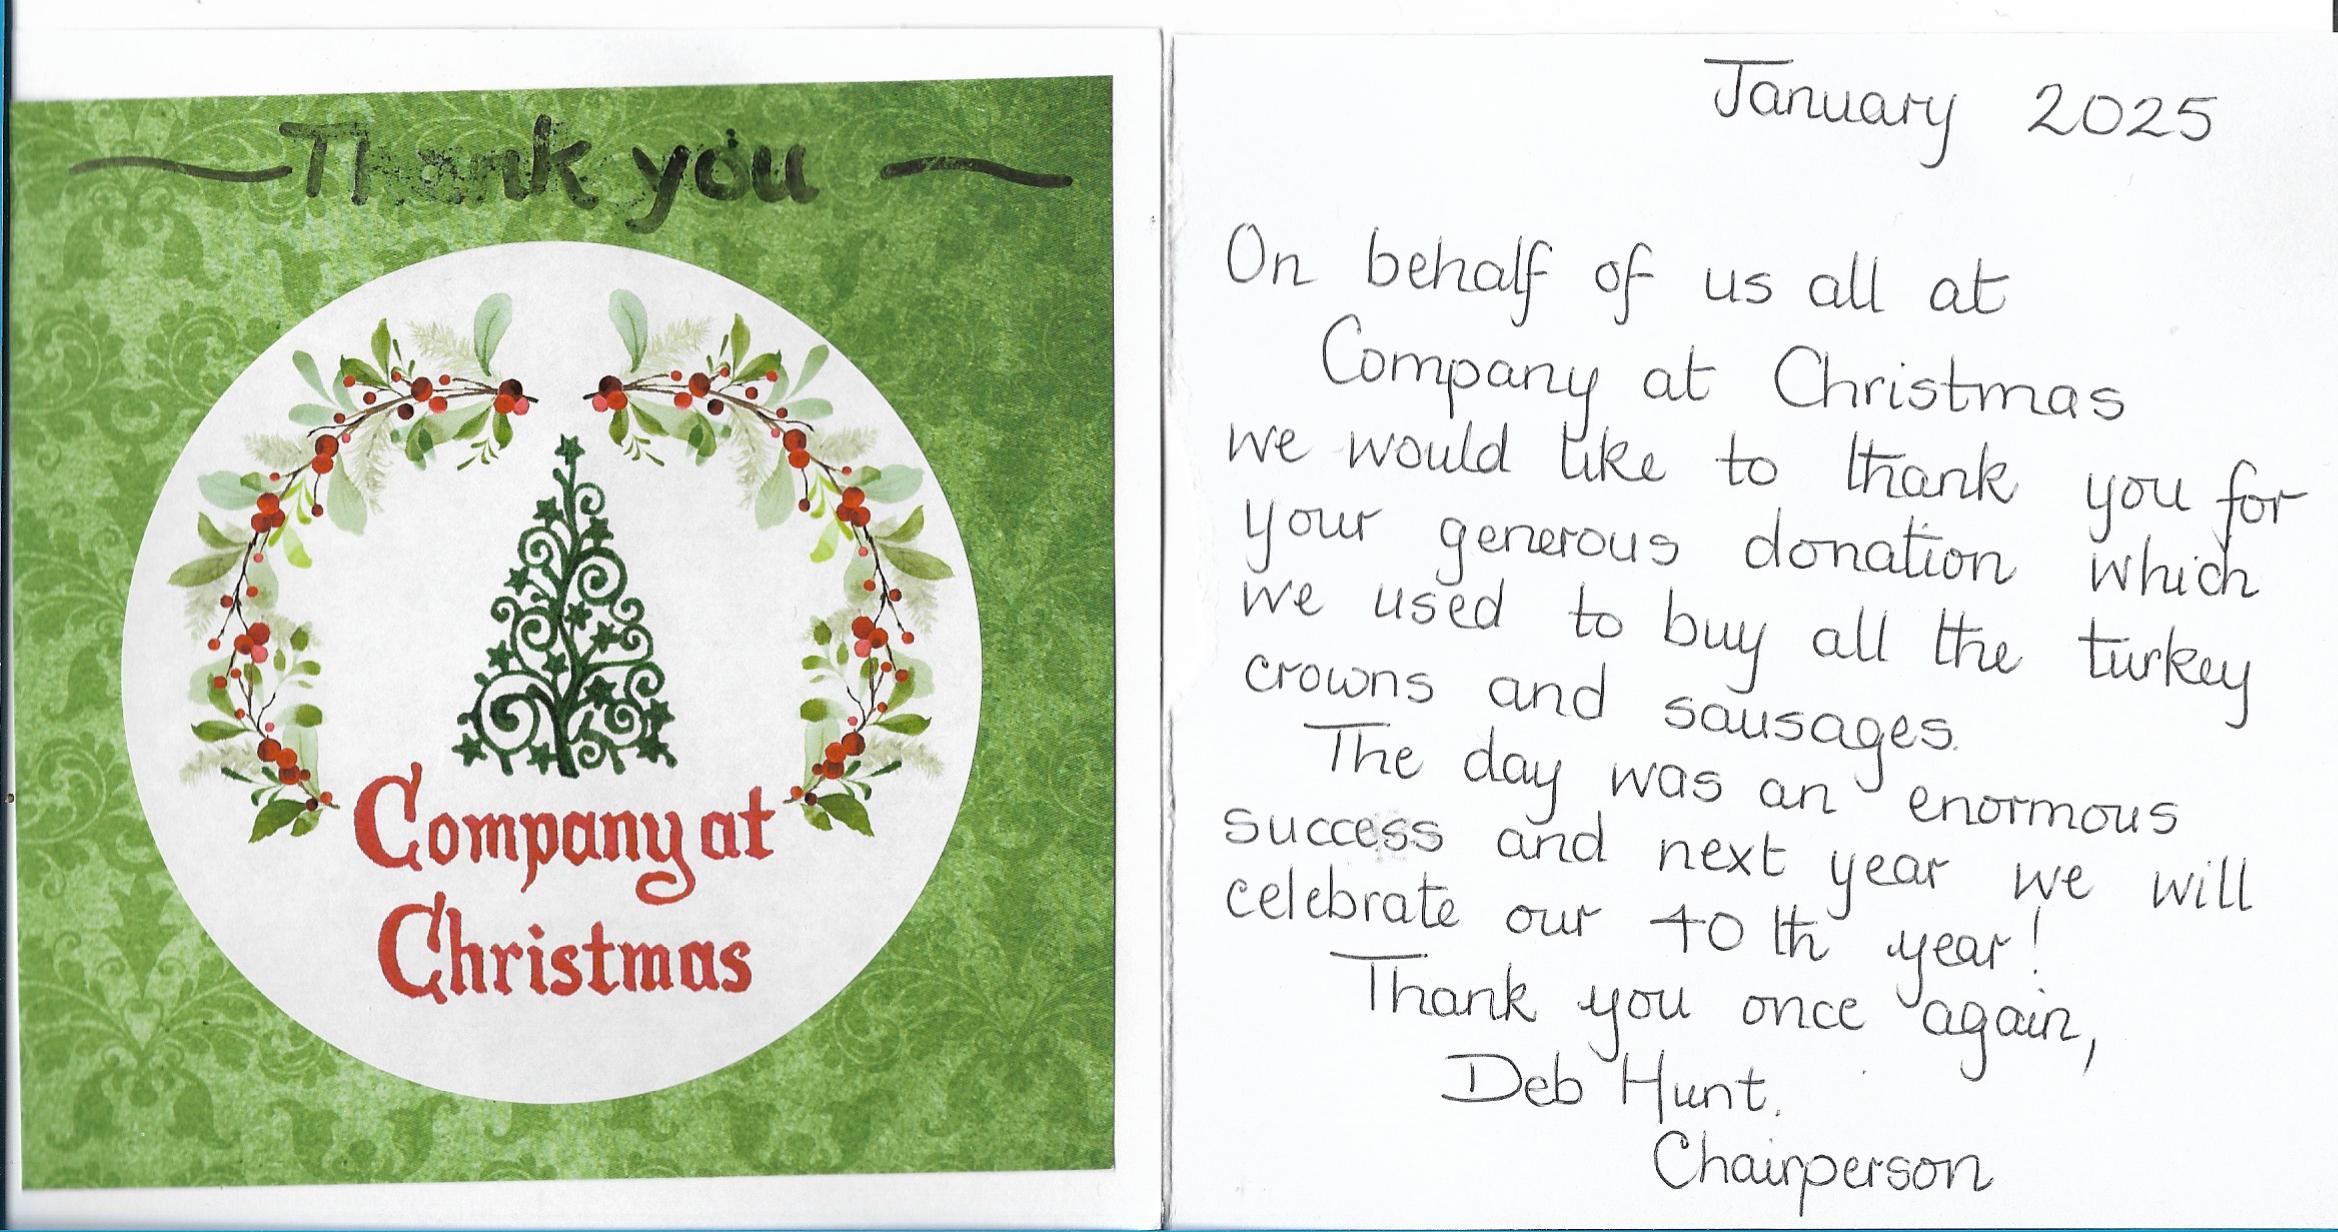 Thank you
Company at
Christmas
January 2025
On behalf of us all at
Company at Christmas
we would like to thank you for
your generous donation which
we used to buy all the turkey
crowns and sausages.
The day was an enormous
success and next year we will
celebrate our 40th year!
Thank you once again,
Deb Hunt.
Chairperson